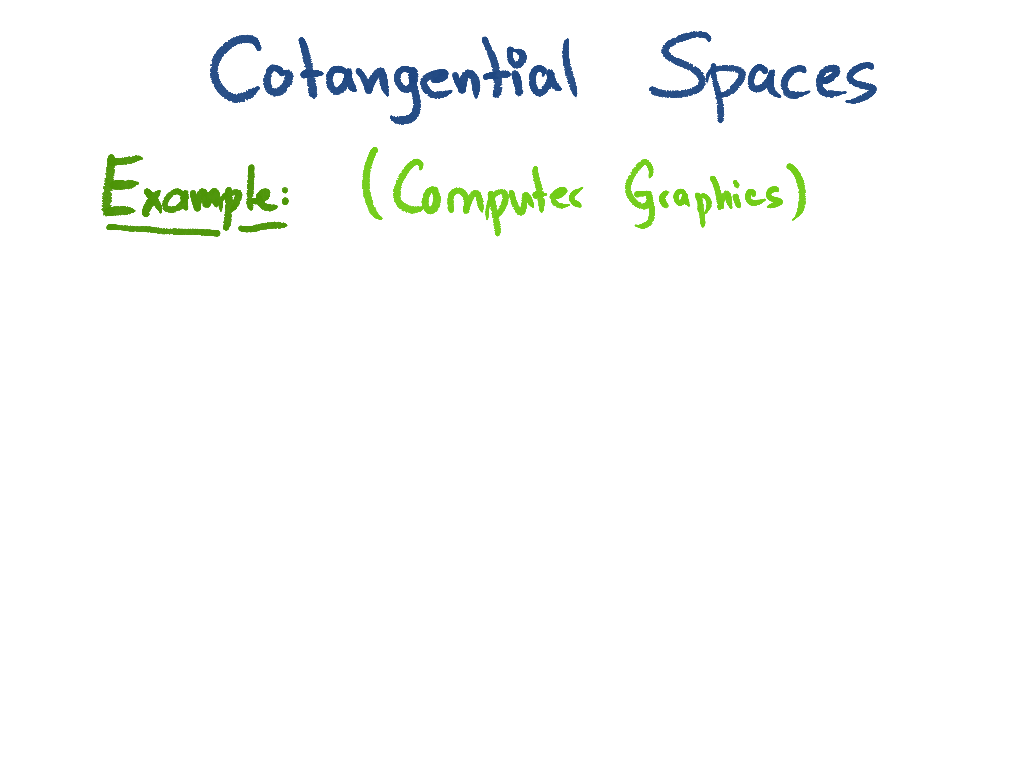 Cotangential Spaces
Example: (Computer Graphics)